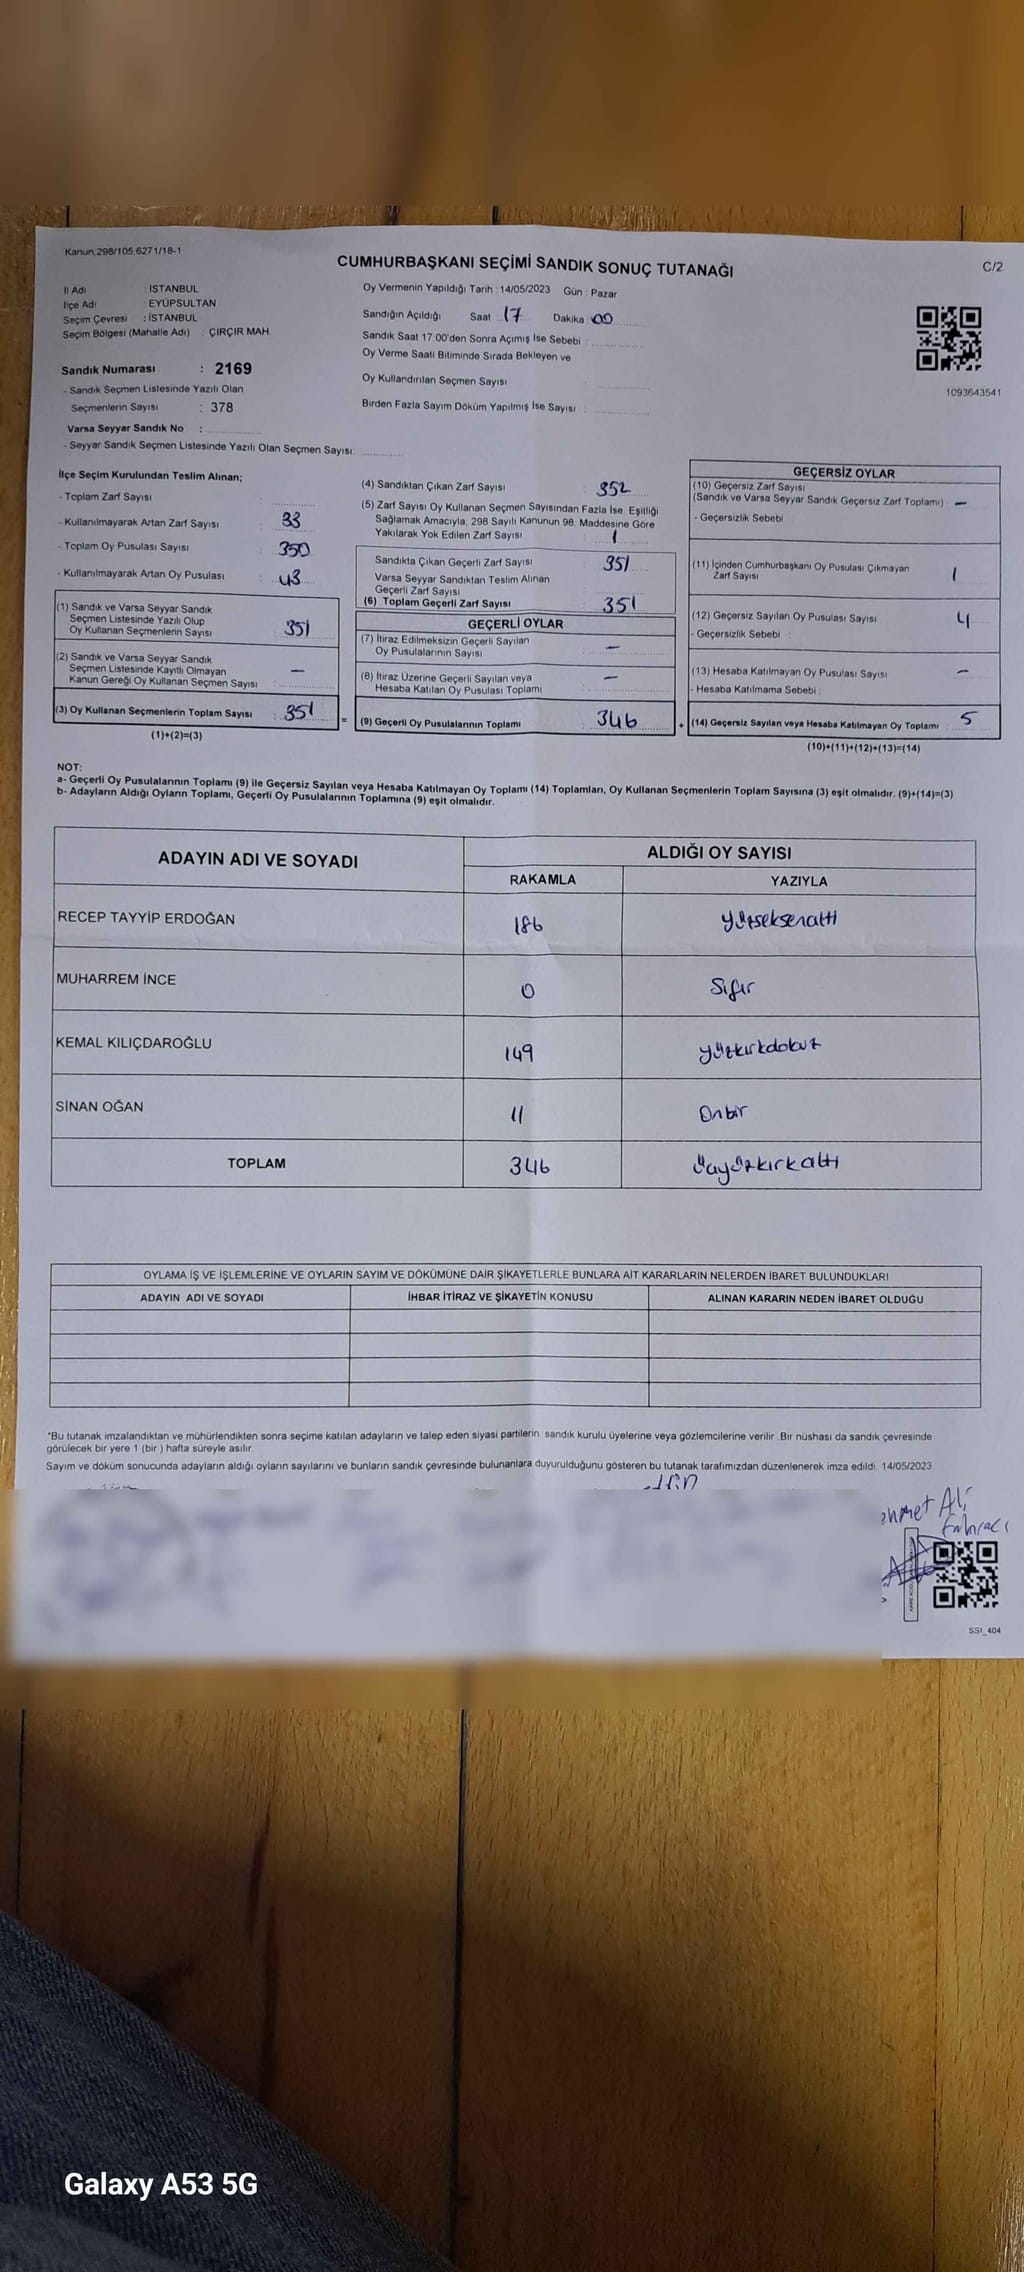 Kanun:298/105,6271/18-1
CUMHURBAŞKANI SEÇİMİ SANDIK SONUÇ TUTANAĞI
C/2
İl Adı : İSTANBUL
İlçe Adı : EYÜPSULTAN
Seçim Çevresi : İSTANBUL
Seçim Bölgesi (Mahalle Adı) : ÇIRÇIR MAH.
Oy Vermenin Yapıldığı Tarih : 14/05/2023 Gün : Pazar
Sandığın Açıldığı Saat : 17 Dakika : 00
Sandık Saat 17:00'den Sonra Açımış İse Sebebi :
Oy Verme Saati Bitiminde Sırada Bekleyen ve
Oy Kullandırılan Seçmen Sayısı :
Birden Fazla Sayım Döküm Yapılmış İse Sayısı :
1093643541
Sandık Numarası : 2169
- Sandık Seçmen Listesinde Yazılı Olan
Seçmenlerin Sayısı : 378
Varsa Seyyar Sandık No :
- Seyyar Sandık Seçmen Listesinde Yazılı Olan Seçmen Sayısı:
İlçe Seçim Kurulundan Teslim Alınan;
- Toplam Zarf Sayısı :
- Kullanılmayarak Artan Zarf Sayısı : 33
- Toplam Oy Pusulası Sayısı : 350
- Kullanılmayarak Artan Oy Pusulası : 43
(1) Sandık ve Varsa Seyyar Sandık
Seçmen Listesinde Yazılı Olup
Oy Kullanan Seçmenlerin Sayısı : 351
(2) Sandık ve Varsa Seyyar Sandık
Seçmen Listesinde Kayıtlı Olmayan
Kanun Gereği Oy Kullanan Seçmen Sayısı : —
(3) Oy Kullanan Seçmenlerin Toplam Sayısı : 351
(1)+(2)=(3)
=
(4) Sandıktan Çıkan Zarf Sayısı : 352
(5) Zarf Sayısı Oy Kullanan Seçmen Sayısından Fazla İse, Eşitliği
Sağlamak Amacıyla, 298 Sayılı Kanunun 98. Maddesine Göre
Yakılarak Yok Edilen Zarf Sayısı : 1
Sandıkta Çıkan Geçerli Zarf Sayısı : 351
Varsa Seyyar Sandıktan Teslim Alınan
Geçerli Zarf Sayısı :
(6) Toplam Geçerli Zarf Sayısı : 351
GEÇERLİ OYLAR
(7) İtiraz Edilmeksizin Geçerli Sayılan
Oy Pusulalarının Sayısı : —
(8) İtiraz Üzerine Geçerli Sayılan veya
Hesaba Katılan Oy Pusulası Toplamı : —
(9) Geçerli Oy Pusulalarının Toplamı : 346
+
GEÇERSİZ OYLAR
(10) Geçersiz Zarf Sayısı
(Sandık ve Varsa Seyyar Sandık Geçersiz Zarf Toplamı) : —
- Geçersizlik Sebebi :
(11) İçinden Cumhurbaşkanı Oy Pusulası Çıkmayan
Zarf Sayısı : 1
(12) Geçersiz Sayılan Oy Pusulası Sayısı : 4
- Geçersizlik Sebebi :
(13) Hesaba Katılmayan Oy Pusulası Sayısı : —
- Hesaba Katılmama Sebebi :
(14) Geçersiz Sayılan veya Hesaba Katılmayan Oy Toplamı : 5
(10)+(11)+(12)+(13)=(14)
NOT:
a- Geçerli Oy Pusulalarının Toplamı (9) ile Geçersiz Sayılan veya Hesaba Katılmayan Oy Toplamı (14) Toplamları, Oy Kullanan Seçmenlerin Toplam Sayısına (3) eşit olmalıdır. (9)+(14)=(3)
b- Adayların Aldığı Oyların Toplamı, Geçerli Oy Pusulalarının Toplamına (9) eşit olmalıdır.
ADAYIN ADI VE SOYADI
ALDIĞI OY SAYISI
RAKAMLA
YAZIYLA
RECEP TAYYİP ERDOĞAN 186 yüzseksenaltı
MUHARREM İNCE 0 Sıfır
KEMAL KILIÇDAROĞLU 149 yüzkırkdokuz
SİNAN OĞAN 11 Onbir
TOPLAM 346 üçyüzkırkaltı
OYLAMA İŞ VE İŞLEMLERİNE VE OYLARIN SAYIM VE DÖKÜMÜNE DAİR ŞİKAYETLERLE BUNLARA AİT KARARLARIN NELERDEN İBARET BULUNDUKLARI
ADAYIN ADI VE SOYADI
İHBAR İTİRAZ VE ŞİKAYETİN KONUSU
ALINAN KARARIN NEDEN İBARET OLDUĞU
*Bu tutanak imzalandıktan ve mühürlendikten sonra seçime katılan adayların ve talep eden siyasi partilerin sandık kurulu üyelerine veya gözlemcilerine verilir. Bir nüshası da sandık çevresinde
görülecek bir yere 1 (bir) hafta süreyle asılır.
Sayım ve döküm sonucunda adayların aldığı oyların sayılarını ve bunların sandık çevresinde bulunanlara duyurulduğunu gösteren bu tutanak tarafımızdan düzenlenerek imza edildi. 14/05/2023
Ali
SSI_404
Galaxy A53 5G